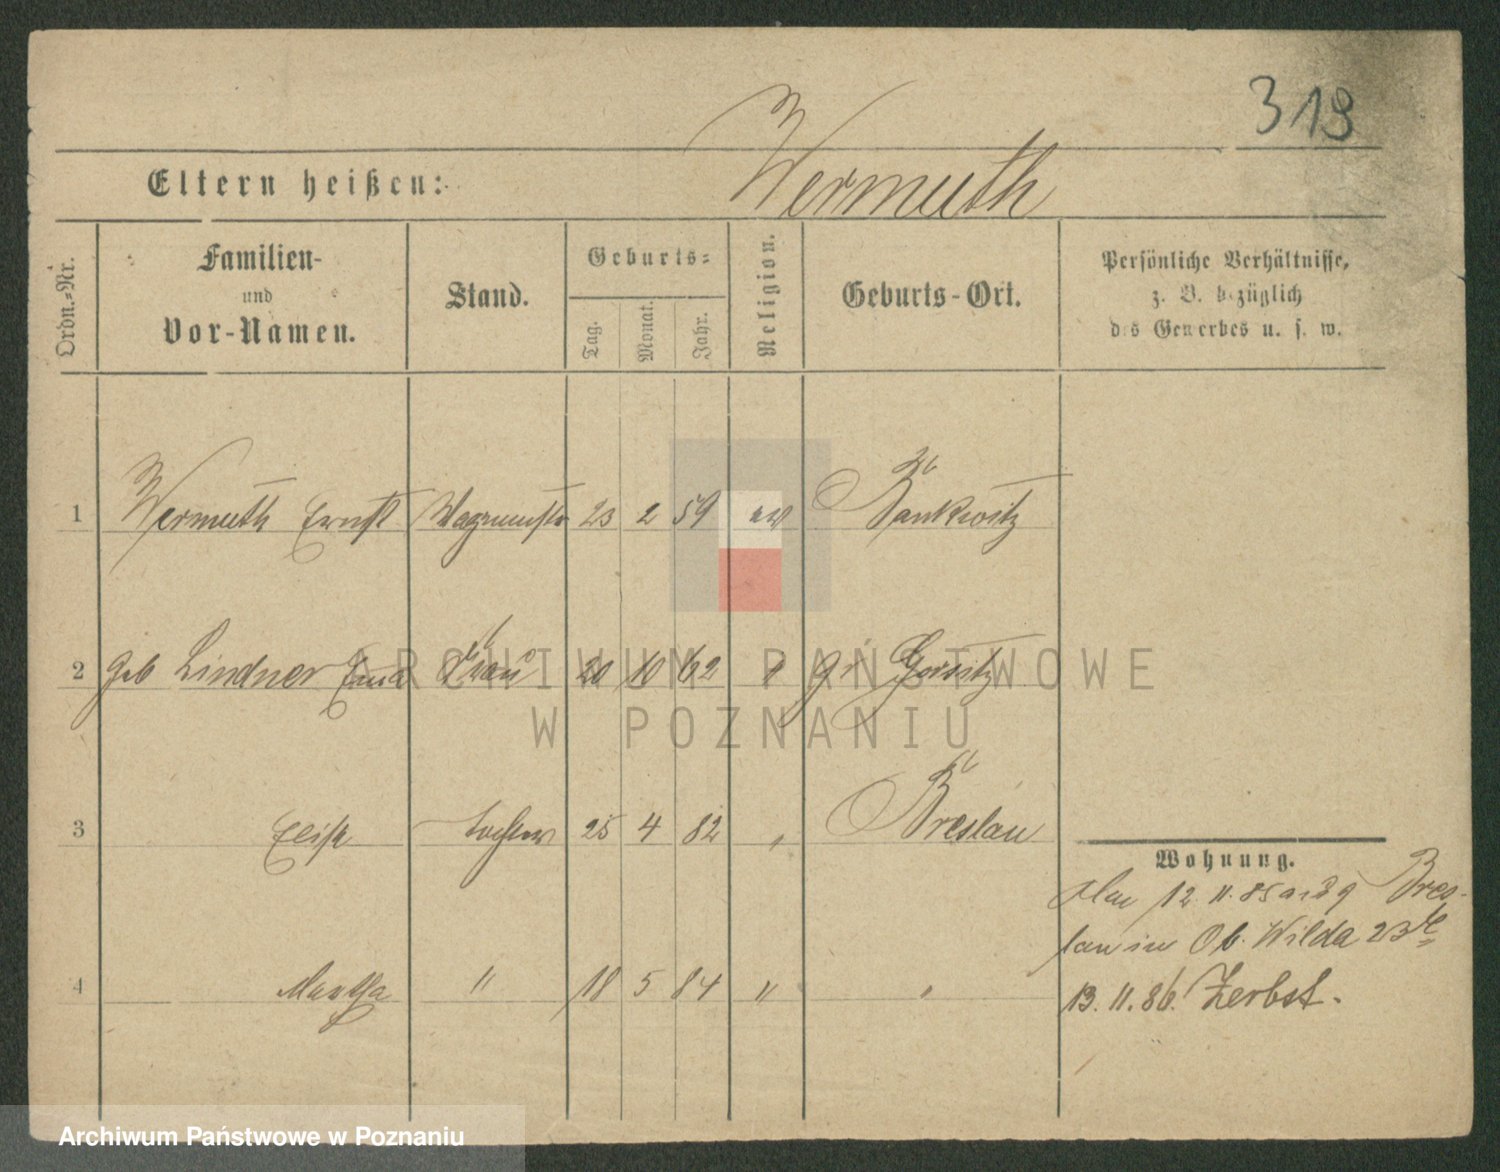 319
Eltern heißen: Wermuth
Ordn.-Nr.
Familien-
und
Vor-Namen.
Stand.
Geburts-
Tag.
Monat.
Jahr.
Religion.
Geburts-Ort.
Persönliche Verhältnisse,
z. B. bezüglich
des Gewerbes u. s. w.
1 Wermuth Ernst 23 2 59 ev Bankwitz
2 geb Lindner Frau 20 10 62 " gr
3 Elise Tochter 25 4 82 " Breslau
4 Martha " 18 5 84 " "
Wohnung.
12. 11. 85 aus Bres-
lau in Ob. Wilda 23
13. 11. 86. Zerbst.
ARCHIWUM PAŃSTWOWE
W POZNANIU
Archiwum Państwowe w Poznaniu